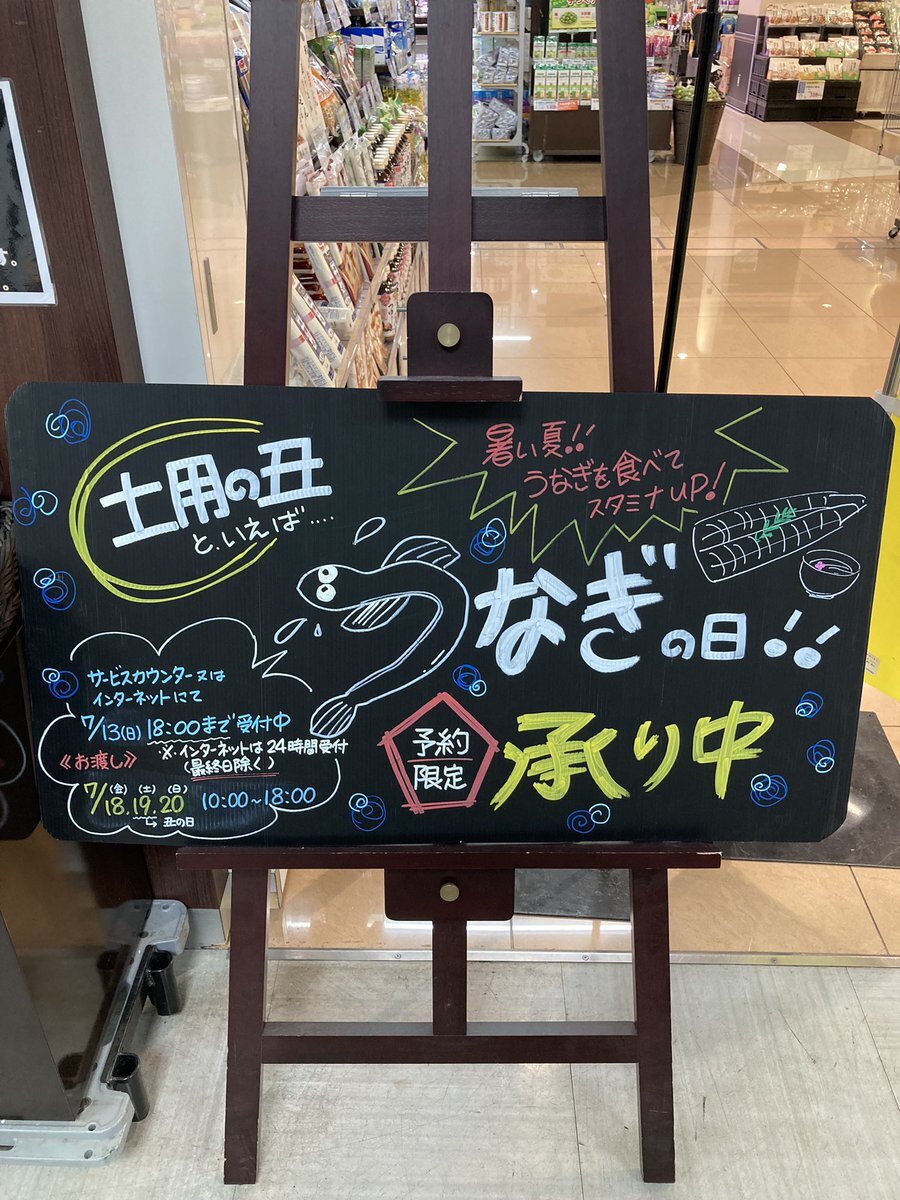 土用の丑
といえば....
暑い夏!!
うなぎを食べて
スタミナUP!
うなぎの日!!
サービスカウンター又は
インターネットにて
7/13(日)18:00まで受付中
※インターネットは24時間受付
(最終日除く)
《お渡し》
(金)(土)(日)
7/18.19.20 10:00~18:00
丑の日
予約
限定
承り中
す。